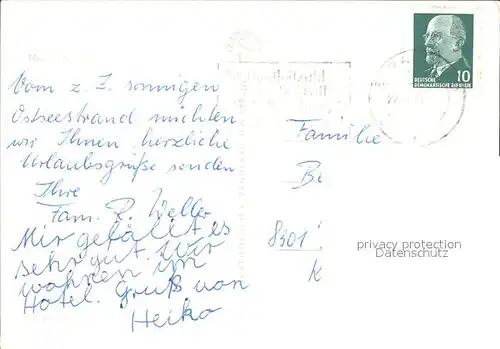 Vom z. Z. sonnigen
Ostseestrand möchten
wir Ihnen herzliche
Urlaubsgrüße senden
Ihre
Fam. R. Weller
Mir gefällt es
sehr gut. Wir
wohnen im
Hotel. Gruß von
Heiko
DEUTSCHE
DEMOKRATISCHE REPUBLIK
10
Familie
Be
8301
K
privacy protection
Datenschutz